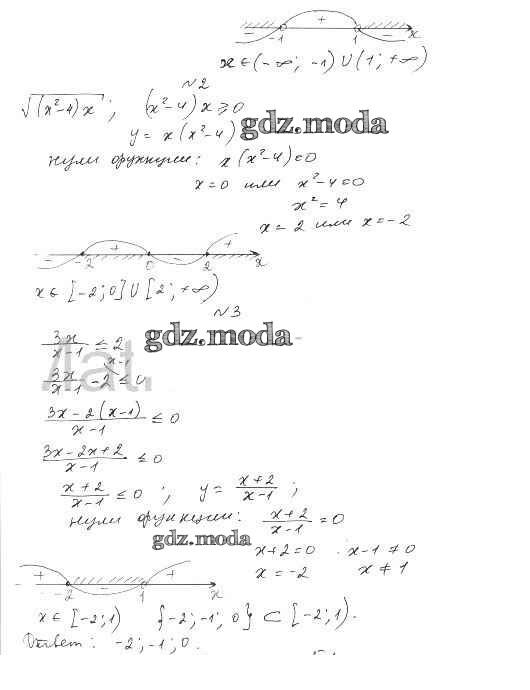 +
-1 1 x
x ∈ (-∞; -1) ∪ (1; +∞)
№2
√(x²-4)x ; (x²-4)x ≥ 0
y = x(x²-4)
gdz.moda
нули функции: x(x²-4)=0
x=0 или x²-4=0
x²=4
x=2 или x=-2
- + - +
-2 0 2 x
x ∈ [-2;0] ∪ [2;+∞)
№3
3x/(x-1) ≤ 2
gdz.moda
3x/(x-1) - 2 ≤ 0
(3x-2(x-1))/(x-1) ≤ 0
(3x-2x+2)/(x-1) ≤ 0
(x+2)/(x-1) ≤ 0 ; y = (x+2)/(x-1) ;
нули функции: (x+2)/(x-1) = 0
gdz.moda
x+2=0 x-1≠0
x=-2 x≠1
+ - +
-2 1 x
x ∈ [-2;1) {-2;-1;0} ⊂ [-2;1).
Ответ: -2;-1;0.